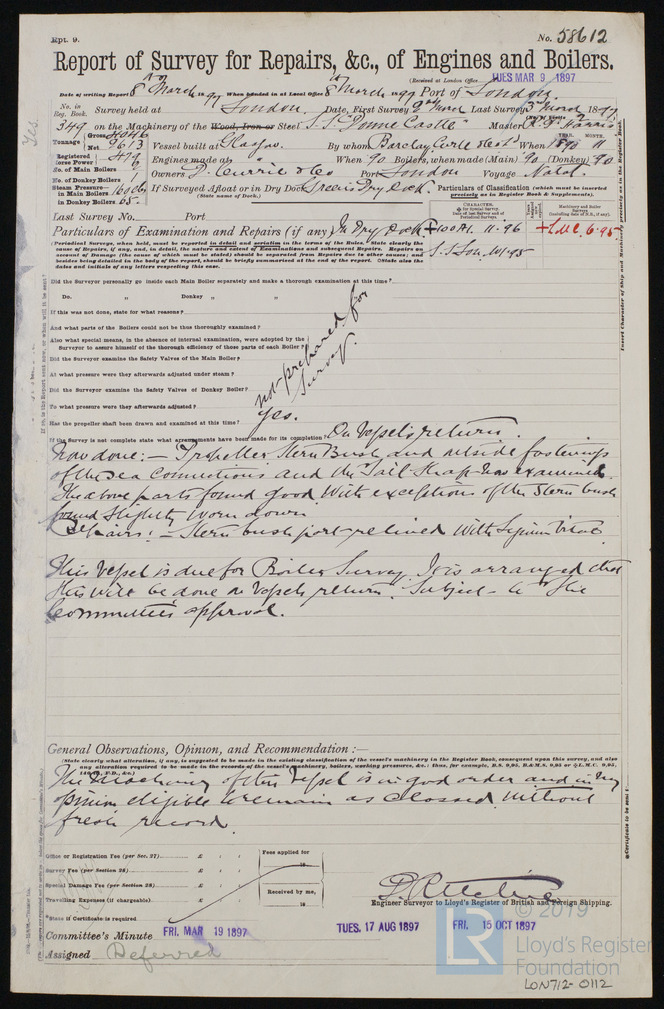 Rpt. 9.
No. 58612
Report of Survey for Repairs, &c., of Engines and Boilers.
(Received at London Office TUES MAR 9 1897
Date of writing Report 8th March 1897 When handed in at Local Office 8th March 1897 Port of London
No. in Reg. Book. Survey held at London Date, First Survey 2nd March Last Survey 3rd March 1897
349 on the Machinery of the Wood, Iron or Steel S.S. "Doune Castle" Master
Tonnage Gross 4046 Net 2613 Vessel built at Glasgow By whom Barclay Curle & Co Ld When 1890 11
Registered Horse Power 419 Engines made at " When 90 Boilers, when made (Main) 90 (Donkey) 90
No. of Main Boilers Owners D. Currie & Co Port London Voyage Natal
No. of Donkey Boilers 1
Steam Pressure in Main Boilers 160 lbs If Surveyed Afloat or in Dry Dock Green's Dry Dock
in Donkey Boilers 65 (State name of Dock.)
Particulars of Classification (which must be inserted precisely as in Register Book & Supplements).
Last Survey No. Port
CHARACTER.
Machinery and Boiler Surveys
Particulars of Examination and Repairs (if any) In Dry Dock +100A1. 11.96 +LMC 6.95
S.S. Lon. No1-95
(Periodical Surveys, when held, must be reported in detail and seriatim in the terms of the Rules. State clearly the
cause of Repairs, if any, and, in detail, the nature and extent of Examinations and subsequent Repairs. Repairs on
account of Damage (the cause of which must be stated) should be separated from Repairs due to other causes; and
besides being detailed in the body of the report, should be briefly summarised at the end of the report. State also the
dates and initials of any letters respecting this case.
Did the Surveyor personally go inside each Main Boiler separately and make a thorough examination at this time?
Do. " Donkey " "
If this was not done, state for what reasons?
And what parts of the Boilers could not be thus thoroughly examined?
Also what special means, in the absence of internal examination, were adopted by the
Surveyor to assure himself of the thorough efficiency of those parts of each Boiler?
Did the Surveyor examine the Safety Valves of the Main Boiler?
At what pressure were they afterwards adjusted under steam?
Did the Surveyor examine the Safety Valves of Donkey Boiler?
To what pressure were they afterwards adjusted?
not prepared for
survey.
Has the propeller shaft been drawn and examined at this time? Yes.
If the Survey is not complete state what arrangements have been made for its completion On Vessel's return.
Now done:— Propeller Stern Bush and outside fastenings
of the sea Connections and the Tail Shaft now examined.
The above parts found good With exceptions of the Stern bush
found slightly Worn down
Repairs:— Stern bush part relined With Lignum Vitae.
This Vessel is due for Boiler Survey. It is arranged that
this will be done on Vessels return. Subject to the
Committee's approval.
General Observations, Opinion, and Recommendation:—
(State clearly what alteration, if any, is suggested to be made in the existing classification of the vessel's machinery in the Register Book, consequent upon this survey, and also
any alteration required to be made in the records of the vessel's machinery, boilers, working pressures, &c.: thus, for example, B.S. 9,95, B.&M.S. 9,95 or L.M.C. 9,95,
The Machinery of this Vessel is in good order and in my
opinion eligible to remain as Classed. Without
fresh record.
Office or Registration Fee (per Sec. 27) £ : :
Survey Fee (per Section 28) £ : :
Special Damage Fee (per Section 28) £ : :
Travelling Expenses (if chargeable) £ : :
Fees applied for
18
Received by me,
18
Engineer Surveyor to Lloyd's Register of British and Foreign Shipping.
*State if Certificate is required
Committee's Minute FRI. MAR 19 1897 TUES. 17 AUG 1897 FRI. 15 OCT 1897
Assigned Deferred
© 2019
LR
Lloyd's Register
Foundation
LON712-0112
Yes.